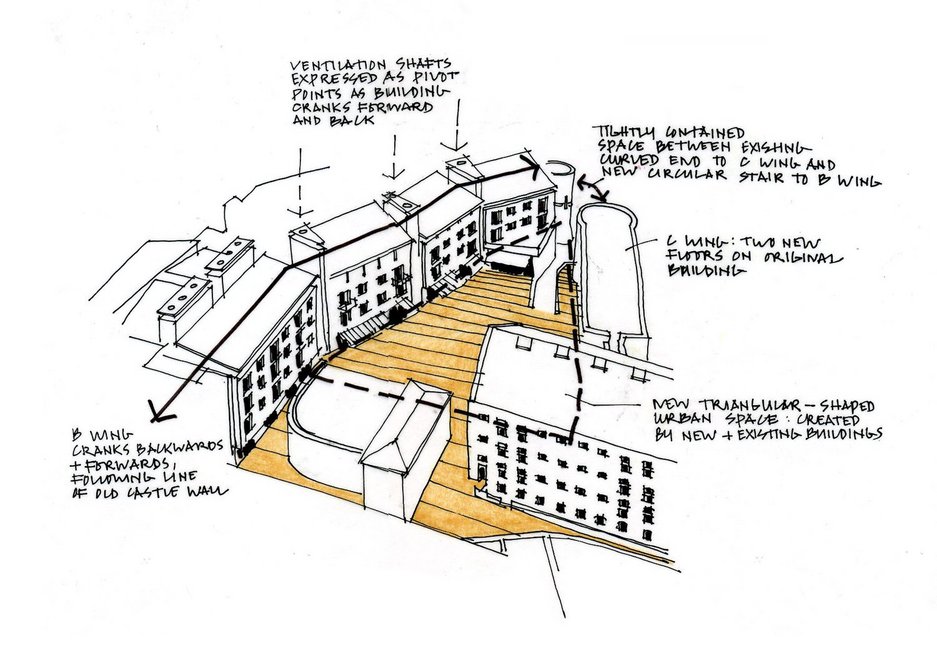 VENTILATION SHAFTS
EXPRESSED AS PIVOT
POINTS AS BUILDING
CRANKS FORWARD
AND BACK
TIGHTLY CONTAINED
SPACE BETWEEN EXISTING
CURVED END TO C WING AND
NEW CIRCULAR STAIR TO B WING
C WING: TWO NEW
FLOORS ON ORIGINAL
BUILDING
NEW TRIANGULAR-SHAPED
URBAN SPACE: CREATED
BY NEW + EXISTING BUILDINGS
B WING
CRANKS BACKWARDS
+ FORWARDS,
FOLLOWING LINE
OF OLD CASTLE WALL